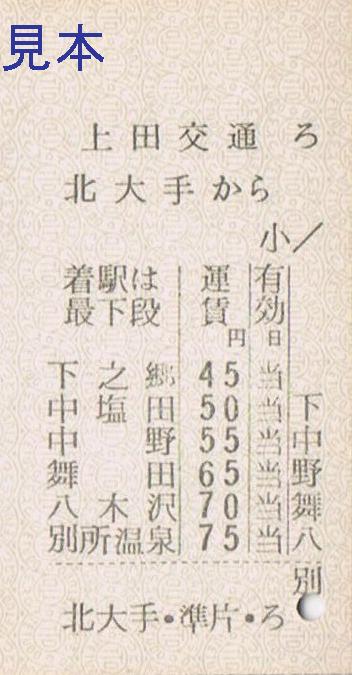 見本
上田交通 ろ
北大手から
小／
着駅は 運賃 有効
最下段 円 日
下之郷 45 当
中塩田 50 当 下
中野 55 当 中
舞田 65 当 野
八木沢 70 当 舞
別所温泉 75 当 八
別
北大手・準片・ろ